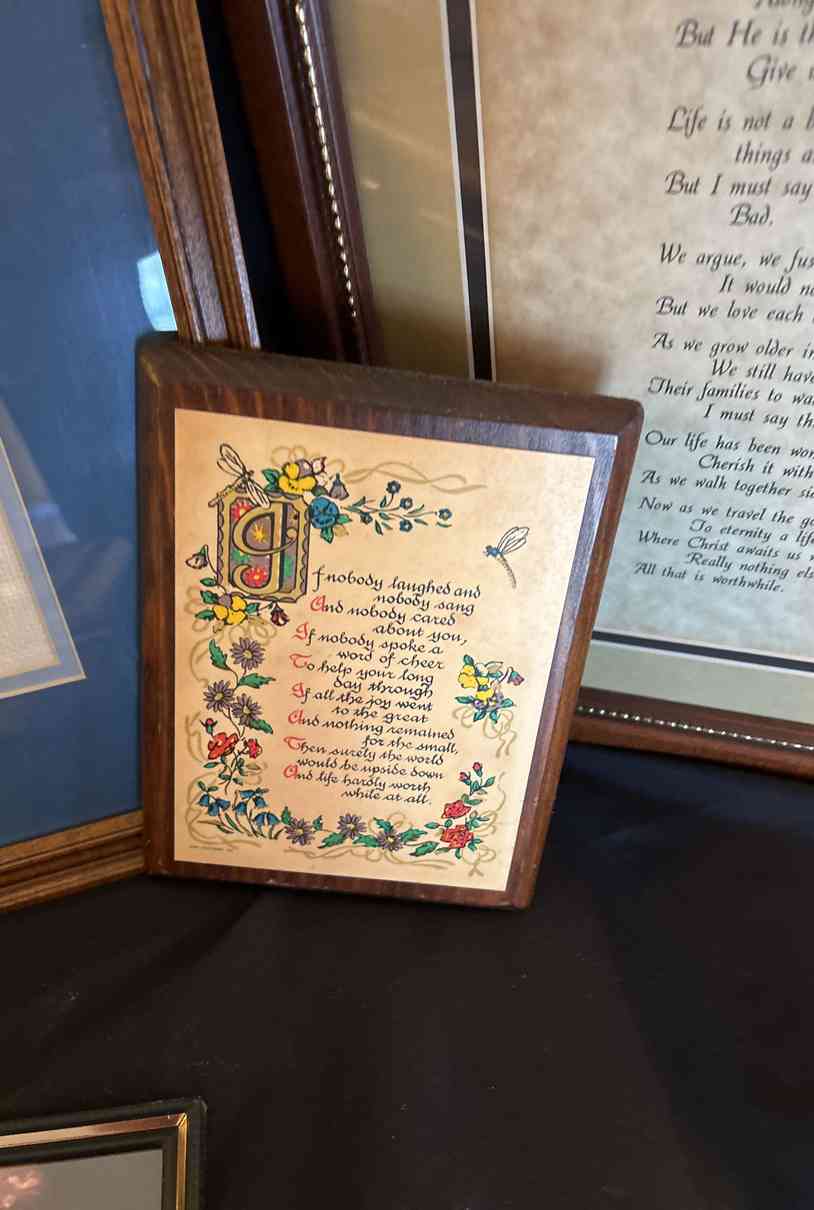 If nobody laughed and
nobody sang
And nobody cared
about you,
If nobody spoke a
word of cheer
To help your long
day through
If all the joy went
to the great
And nothing remained
for the small,
Then surely the world
would be upside down
And life hardly worth
while at all.
But He is
Give
Life is not a
things
But I must say
Bad.
We argue, we
It would
But we love each
As we grow older
We still have
Their families to
I must say
Our life has been
Cherish it with
As we walk together
Now as we travel the
To eternity a
Where Christ awaits us
Really nothing
All that is worthwhile.